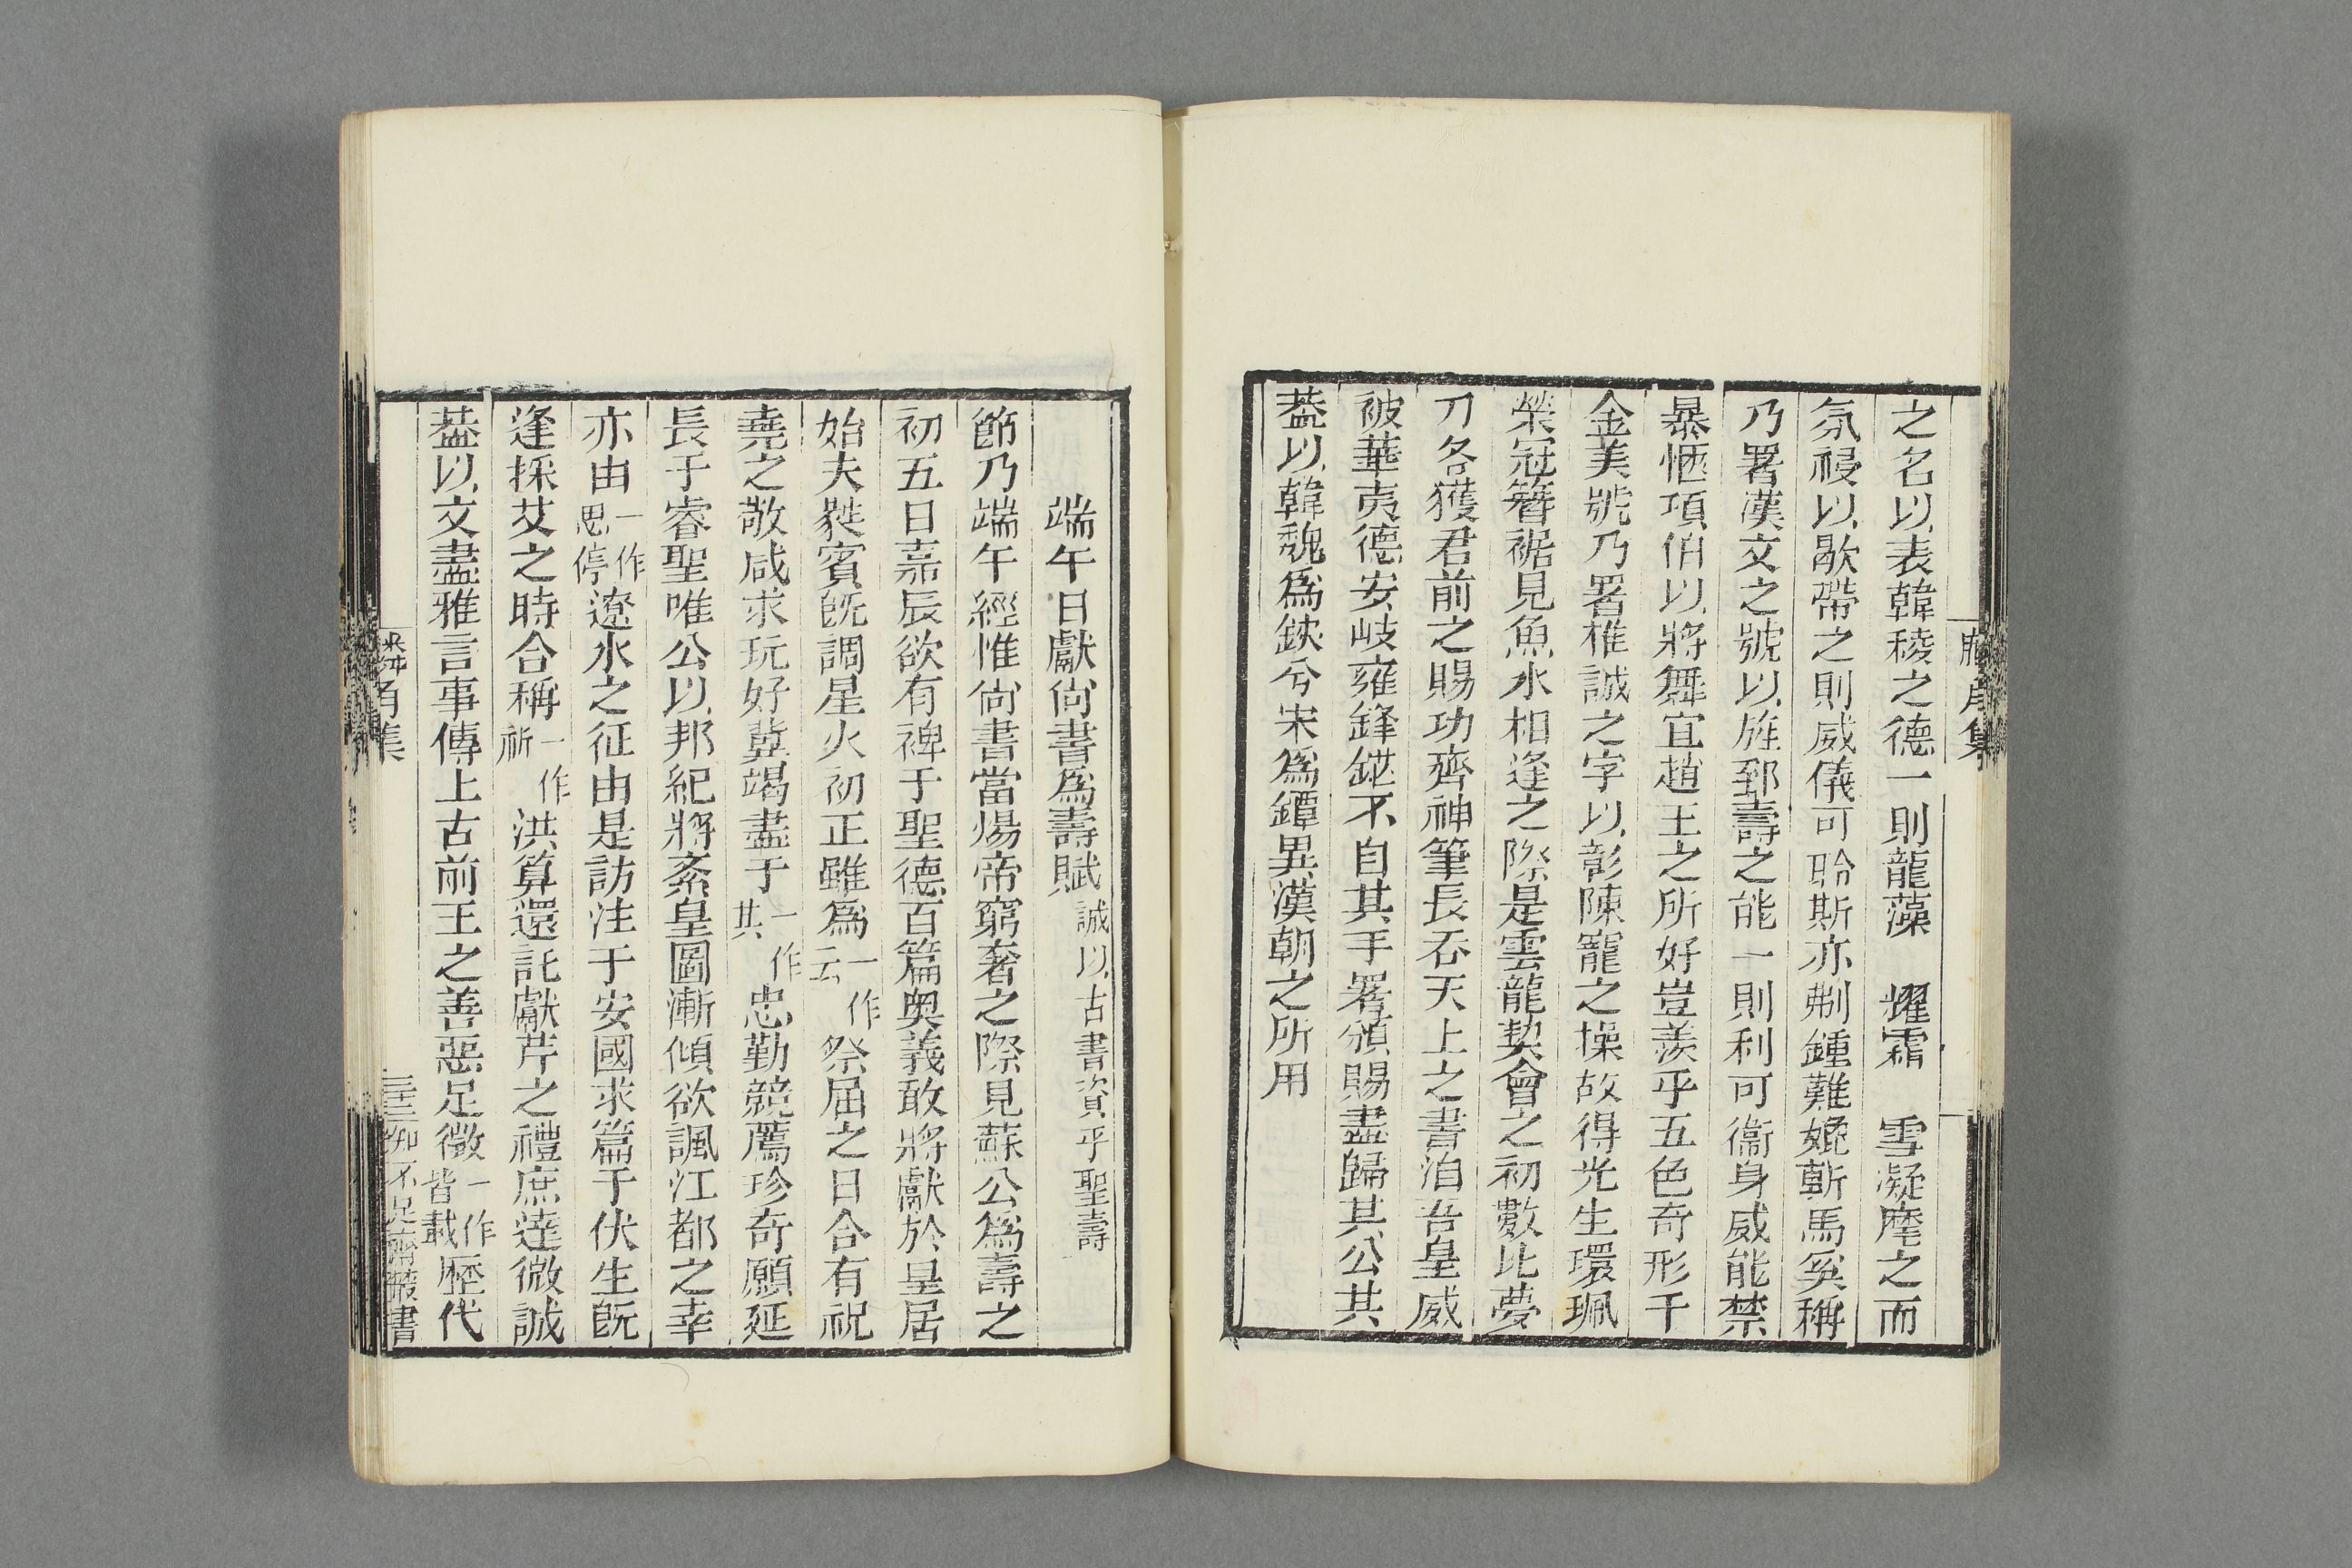 之名以表韓稜之德一則龍藻 耀霜 雪凝麾之而
氛祲以歇帶之則威儀可聆斯亦剸鍾難媲斬馬奚稱
乃署漢文之號以旌郅壽之能一則利可衞身威能禁
暴恆項伯以將舞宜趙王之所好豈羨乎五色奇形千
金美號乃署椎誠之字以彰陳寵之操故得光生環珮
榮冠簪裾見魚水相逢之際是雲龍契會之初數比夢
刀各獲君前之賜功齊神筆長吞天上之書洎吾皇威
被華夷德安岐雍鋒鋩不自其手署頒賜盡歸其公共
葢以韓魏爲鋏兮宋爲鐔異漢朝之所用
端午日獻尙書爲壽賦 誠以古書資乎聖壽
節乃端午經惟尙書當煬帝窮奢之際見蘇公爲壽之
初五日嘉辰欲有裨于聖德百篇奥義敢將獻於皇居
始夫㽔賓旣調星火初正雖爲一作云祭屈之日合有祝
堯之敬咸求玩好冀竭盡于一作其忠勤競薦珍奇願延
長于睿聖唯公以邦紀將紊皇圖漸傾欲諷江都之幸
亦由一作思停遼水之征由是訪注于安國求篇于伏生旣
逢採艾之時合稱一作祈洪算還託獻芹之禮庶達微誠
葢以文盡雅言事傳上古前王之善惡足徵一作皆載歷代
麟角集